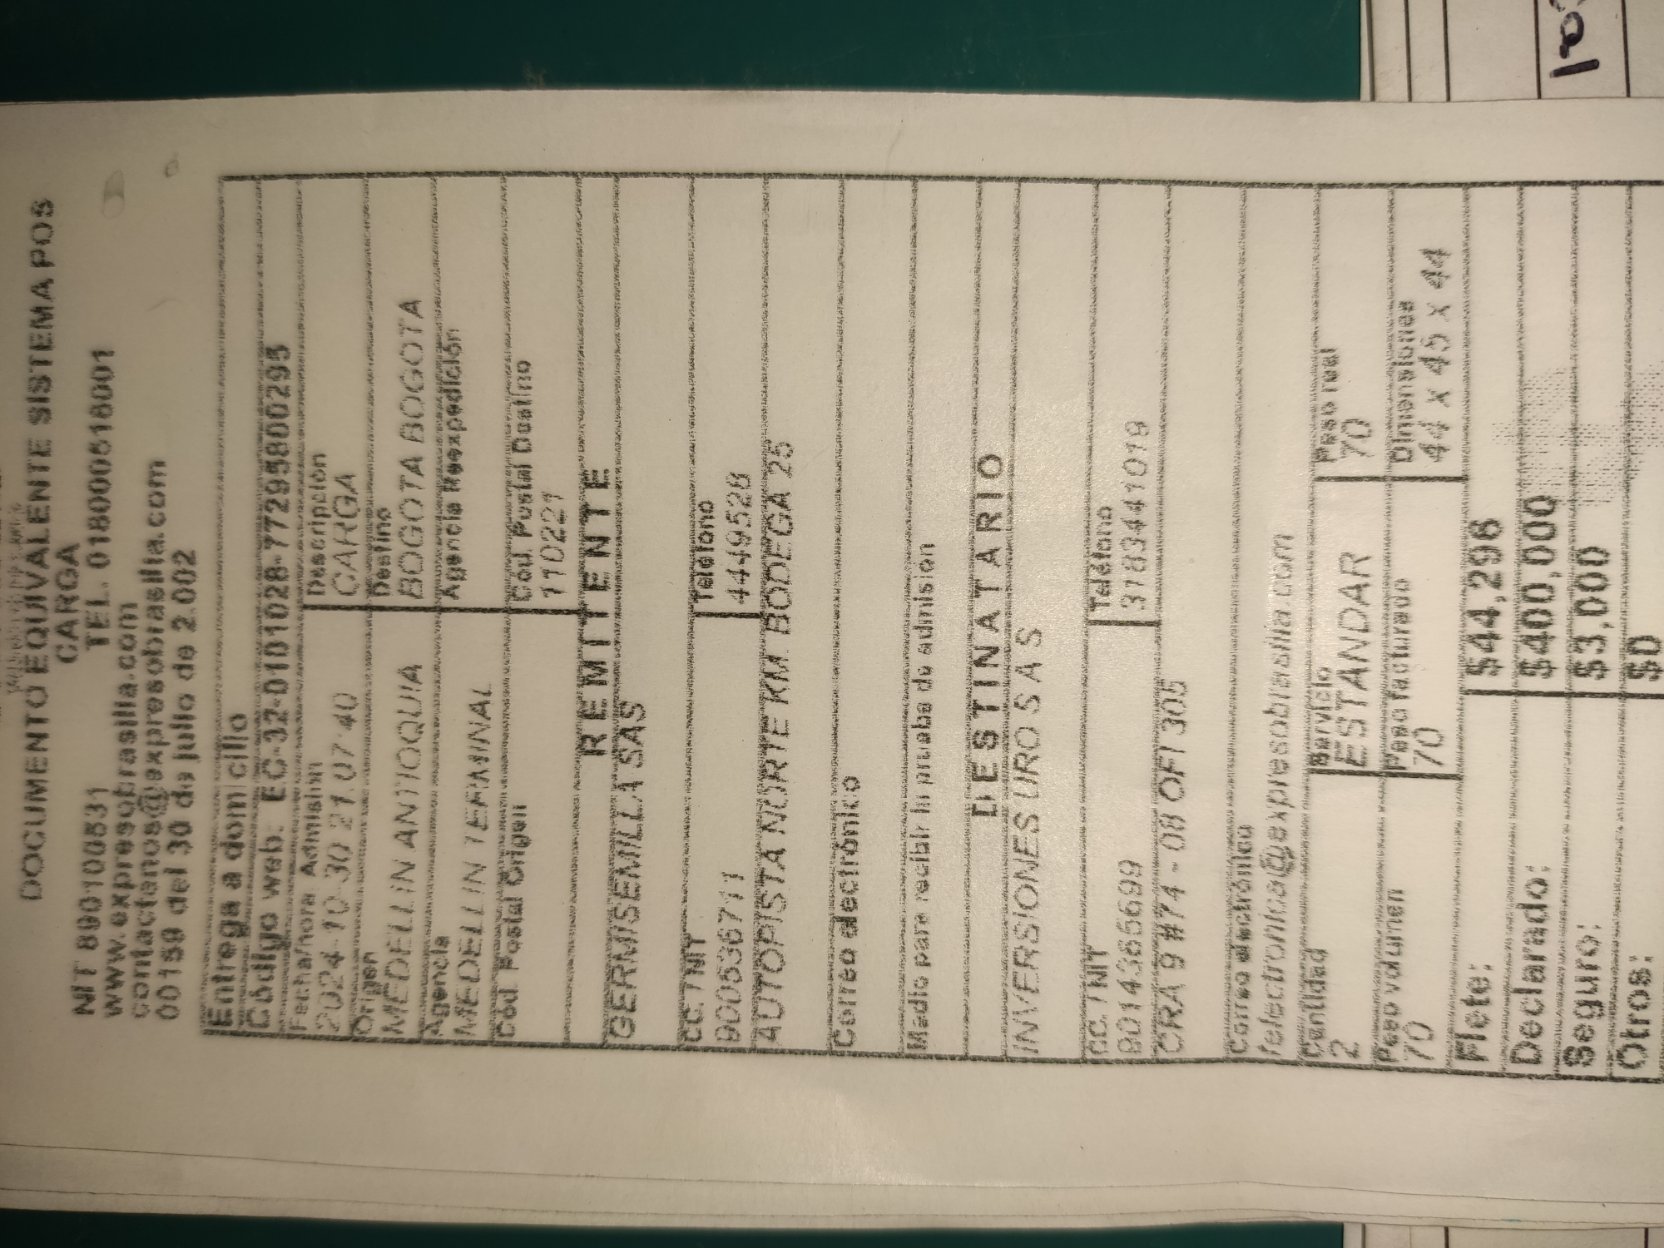 DOCUMENTO EQUIVALENTE SISTEMA POS
CARGA
NIT 890100531 TEL. 018000518001
www.expresobrasilia.com
contactanos@expresobrasilia.com
00159 del 30 de julio de 2.002
Entrega a domicilio
Código web: EC-32-0101028-77295800295
Fecha/hora Admisión Descripción
2024-10-30 21:07:40 CARGA
Origen Destino
MEDELLIN ANTIOQUIA BOGOTA BOGOTA
Agencia Agencia Reexpedición
MEDELLIN TERMINAL
Cod. Postal Origen Cod. Postal Destino
110221
REMITENTE
GERMISEMILLA SAS
CC. / NIT Teléfono
900536711 4449528
AUTOPISTA NORTE KM BODEGA 25
Correo electrónico
Medio para recibir la prueba de admision
DESTINATARIO
INVERSIONES URO S A S
CC. / NIT Teléfono
3183441019
CRA 9 #74 - 08 OFI 305
Correo electrónico
felectronica@expresobrasilia.com
Cantidad Servicio Peso real
2 ESTANDAR 70
Peso volumen Peso facturado Dimensiones
70 70 44 x 45 x 44
Flete: $44,296
Declarado: $400,000
Seguro: $3,000
Otros: $0